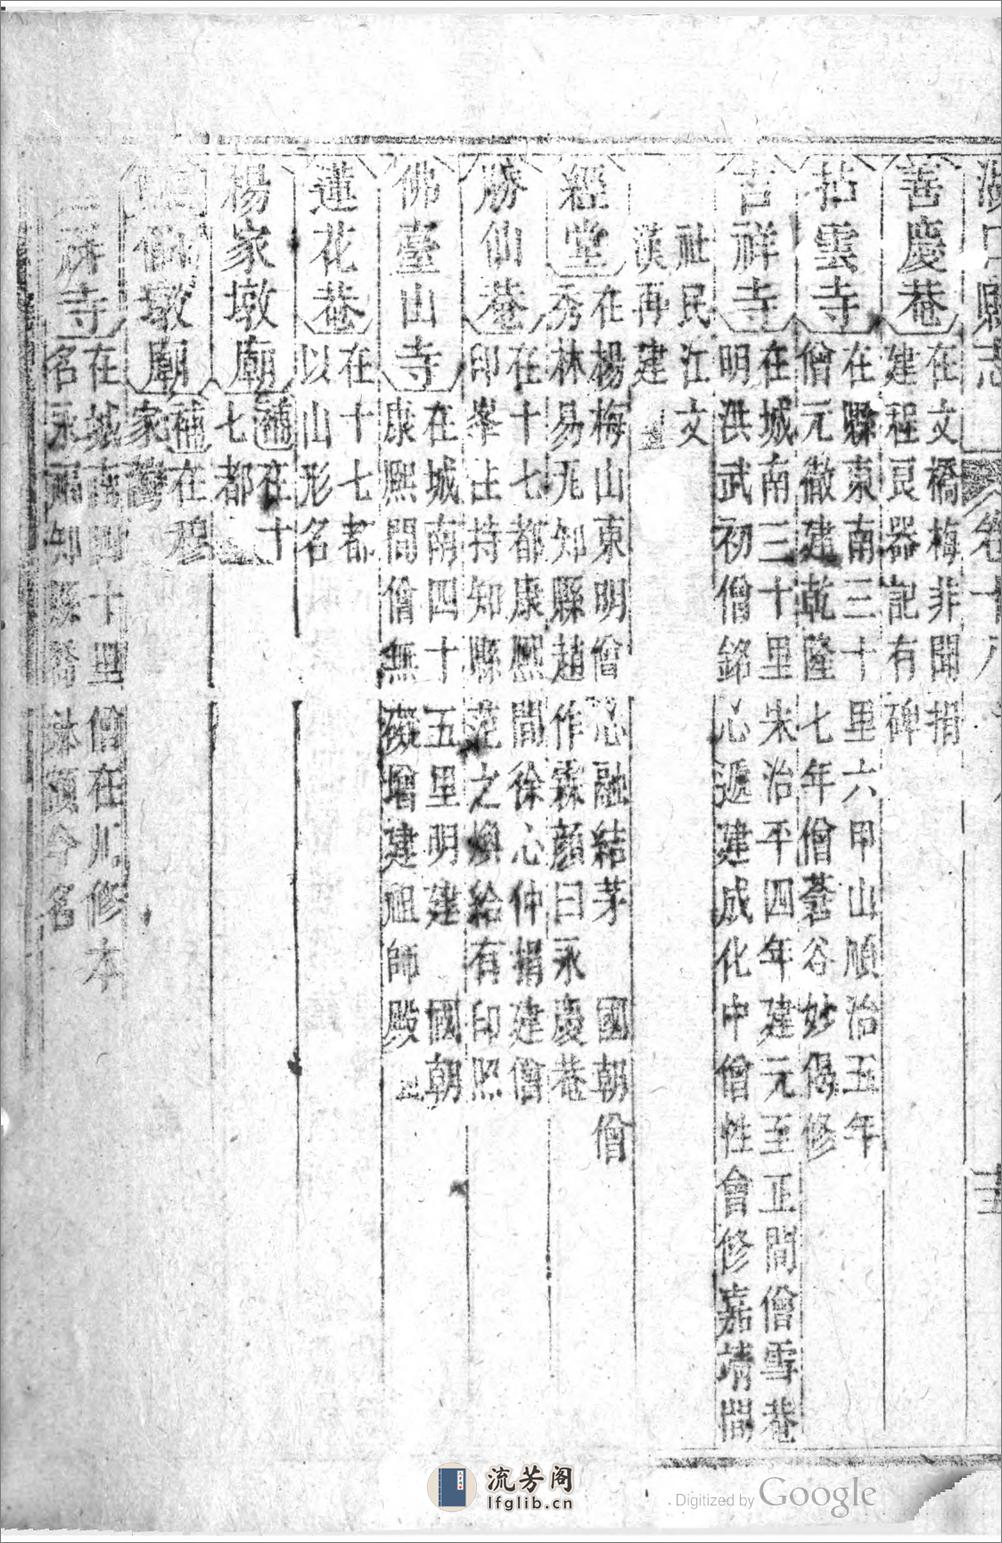 湖口縣志 卷十八
善慶菴 在文橋梅非聞捐
建程良器記有碑
拈雲寺 在縣東南三十里六甲山順治五年
僧元徹建乾隆七年僧蒼谷妙偈修
吉祥寺 在城南三十里宋治平四年建元至正間僧雪菴
明洪武初僧銘心遞建成化中僧性會修嘉靖間
社民江文
漢再建
經堂 在楊梅山東明僧心融結茅 國朝僧
秀林易死知縣趙作霖顔曰永慶菴
勝仙菴 在十七都康熙間徐心仲捐建僧
印峯住持知縣范之煥給有印照
佛臺山寺 在城南四十五里明建 國朝
康熙間僧無礙增建祖師殿
蓮花菴 在十七都
以山形名
楊家墩廟 補在十
七都
仙墩廟 補在穆
家灣
寺 在城南四十里僧在川修本
名永福知縣喬 題今名
流芳阁
lfglib.cn
Digitized by Google